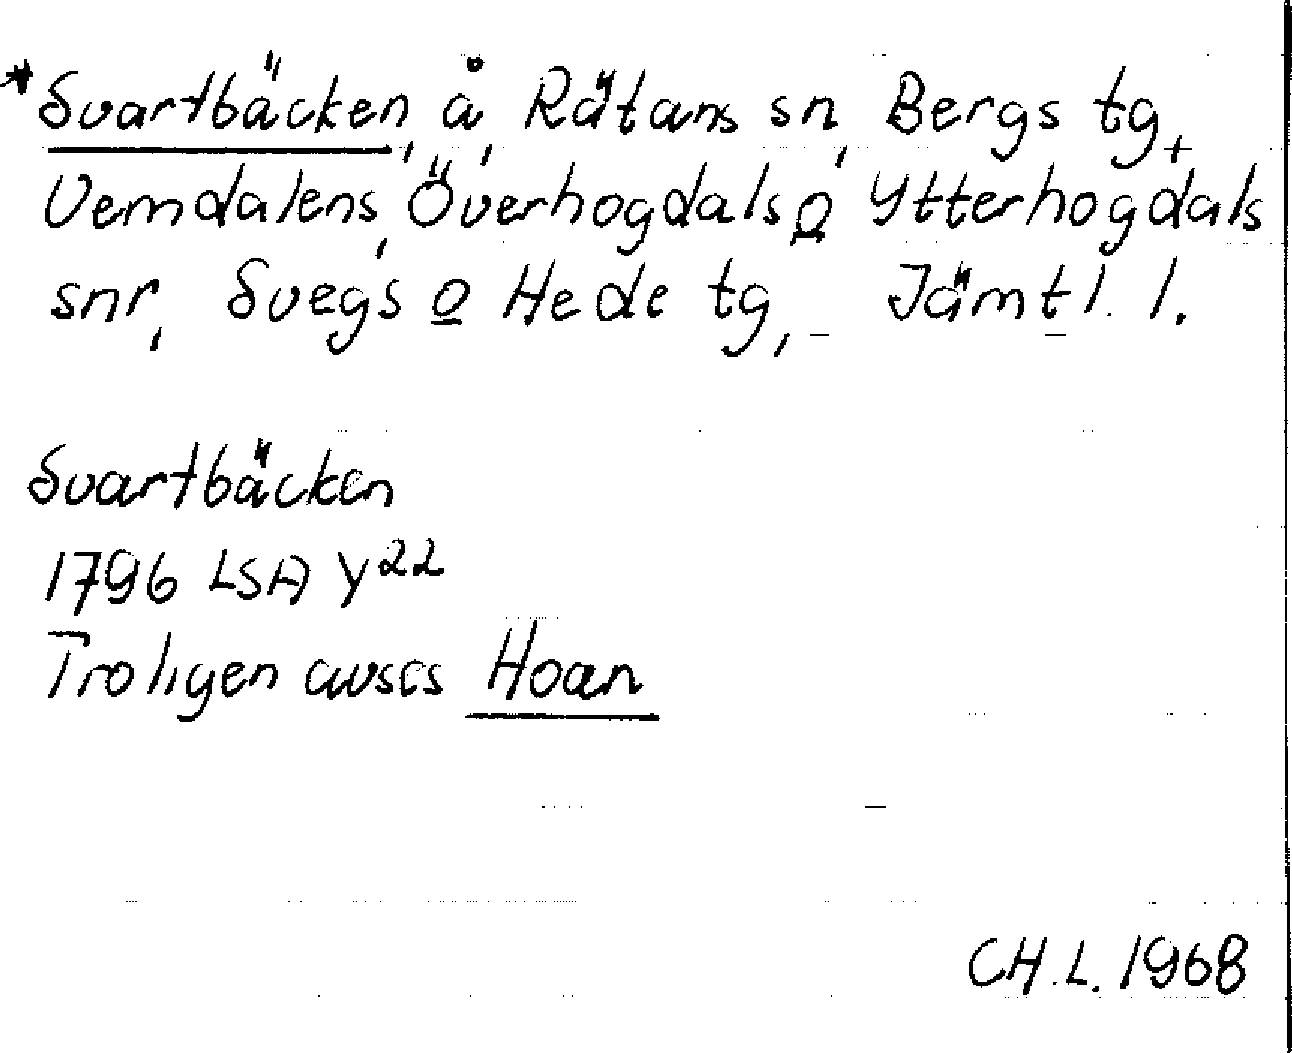 *Svartbäcken, å, Rätans sn, Bergs tg +
Vemdalens, Överhogdals o Ytterhogdals
snr, Svegs o Hede tg, Jämtl. l.
Svartbäcken
1796 LSA Y22
Troligen avses Hoan
CH.L. 1968